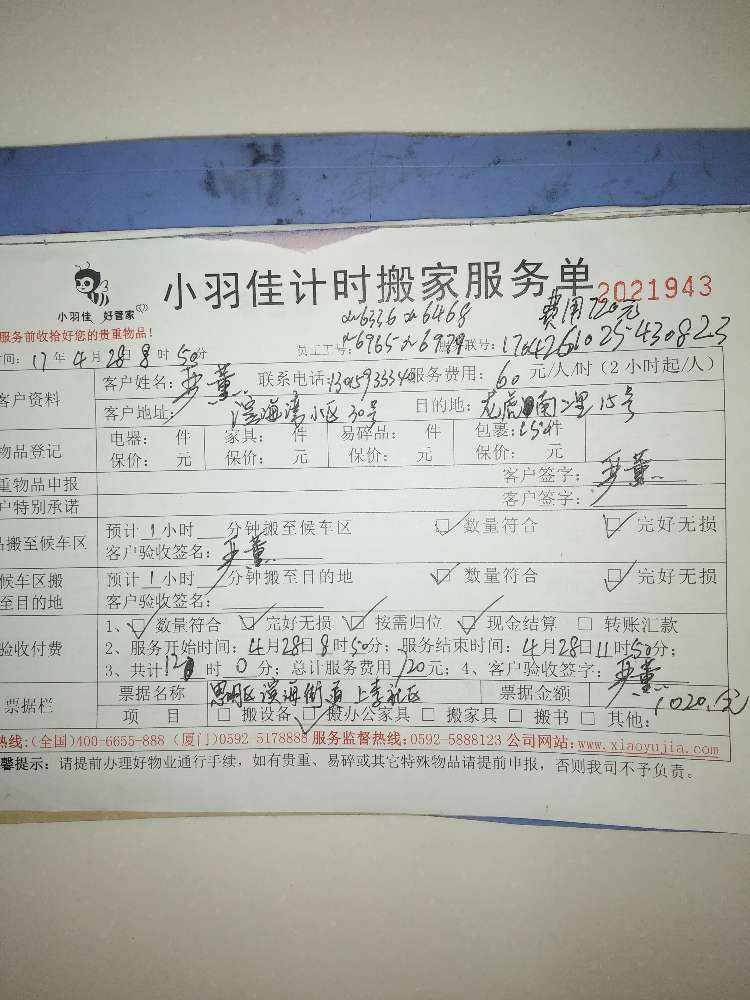 小羽佳计时搬家服务单 2021943
小羽佳 好管家
费用720元
6336 6468
服务前收检好您的贵重物品!
6965 6979
时间: 17年4月28日8时50分 员工工号: 联号: 
客户资料 客户姓名: 联系电话: 服务费用: 60元/人/时(2小时起/人)
客户地址: 滨海湾小区30号 目的地: 龙虎南二里15号
物品登记 电器: 件 家具: 件 易碎品: 件 包裹: 件
保价: 元 保价: 元 保价: 元 保价: 元
重物品申报 客户签字:
户特别承诺 客户签字:
品搬至候车区 预计1小时 分钟搬至候车区 数量符合 完好无损
客户验收签名:
候车区搬至目的地 预计1小时 分钟搬至目的地 数量符合 完好无损
客户验收签名:
验收付费 1、 数量符合 完好无损 按需归位 现金结算 转账汇款
2、服务开始时间: 4月28日8时50分; 服务结束时间: 4月28日11时50分;
3、共计12时0分; 总计服务费用 元; 4、客户验收签字:
票据栏 票据名称 思明区滨海街道上李社区 票据金额 1020.元
项 目 搬设备 搬办公家具 搬家具 搬书 其他:
热线:(全国)400-6655-888 (厦门)0592-5178888 服务监督热线:0592-5888123 公司网站:www.xiaoyujia.com
馨提示: 请提前办理好物业通行手续, 如有贵重、易碎或其它特殊物品请提前申报, 否则我司不予负责。